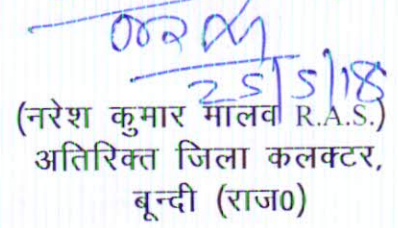 25/5/18
(नरेश कुमार मालव R.A.S.)
अतिरिक्त जिला कलक्टर,
बून्दी (राज0)